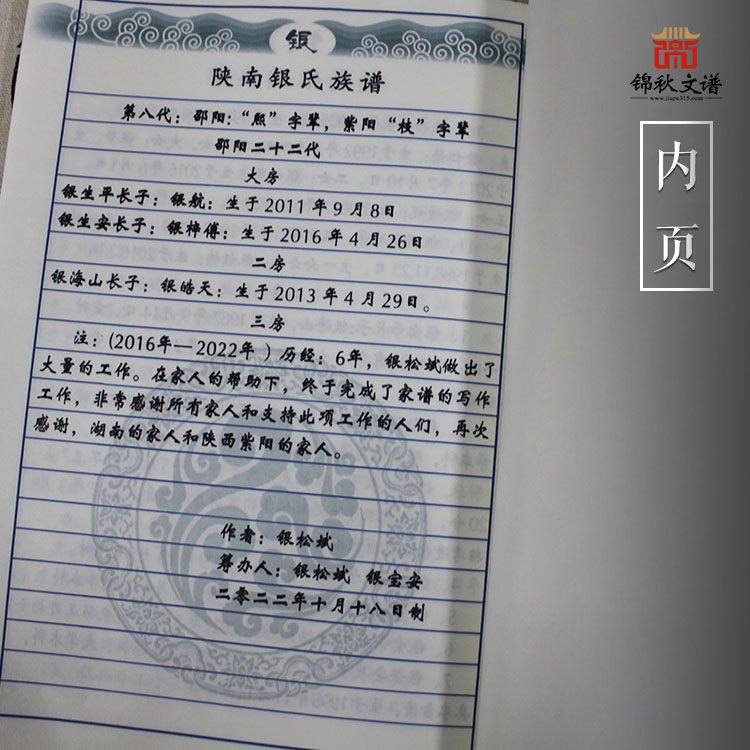 银
陕南银氏族谱
第八代：邵阳：“熙”字辈，紫阳“枝”字辈
邵阳二十二代
大房
银生平长子：银航：生于2011年9月8日
银生安长子：银梓傅：生于2016年4月26日
二房
银海山长子：银皓天：生于2013年4月29日。
三房
注：(2016年—2022年）历经：6年，银松斌做出了
大量的工作。在家人的帮助下，终于完成了家谱的写作
工作，非常感谢所有家人和支持此项工作的人们，再次
感谢，湖南的家人和陕西紫阳的家人。
作者：银松斌
筹办人：银松斌 银宝安
二零二二年十月十八日制
锦秋文谱
www.jiapu315.com
内页